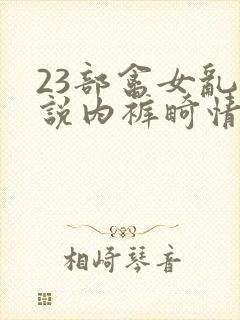 23部畲女乱
説内裤畸情
相崎琴音